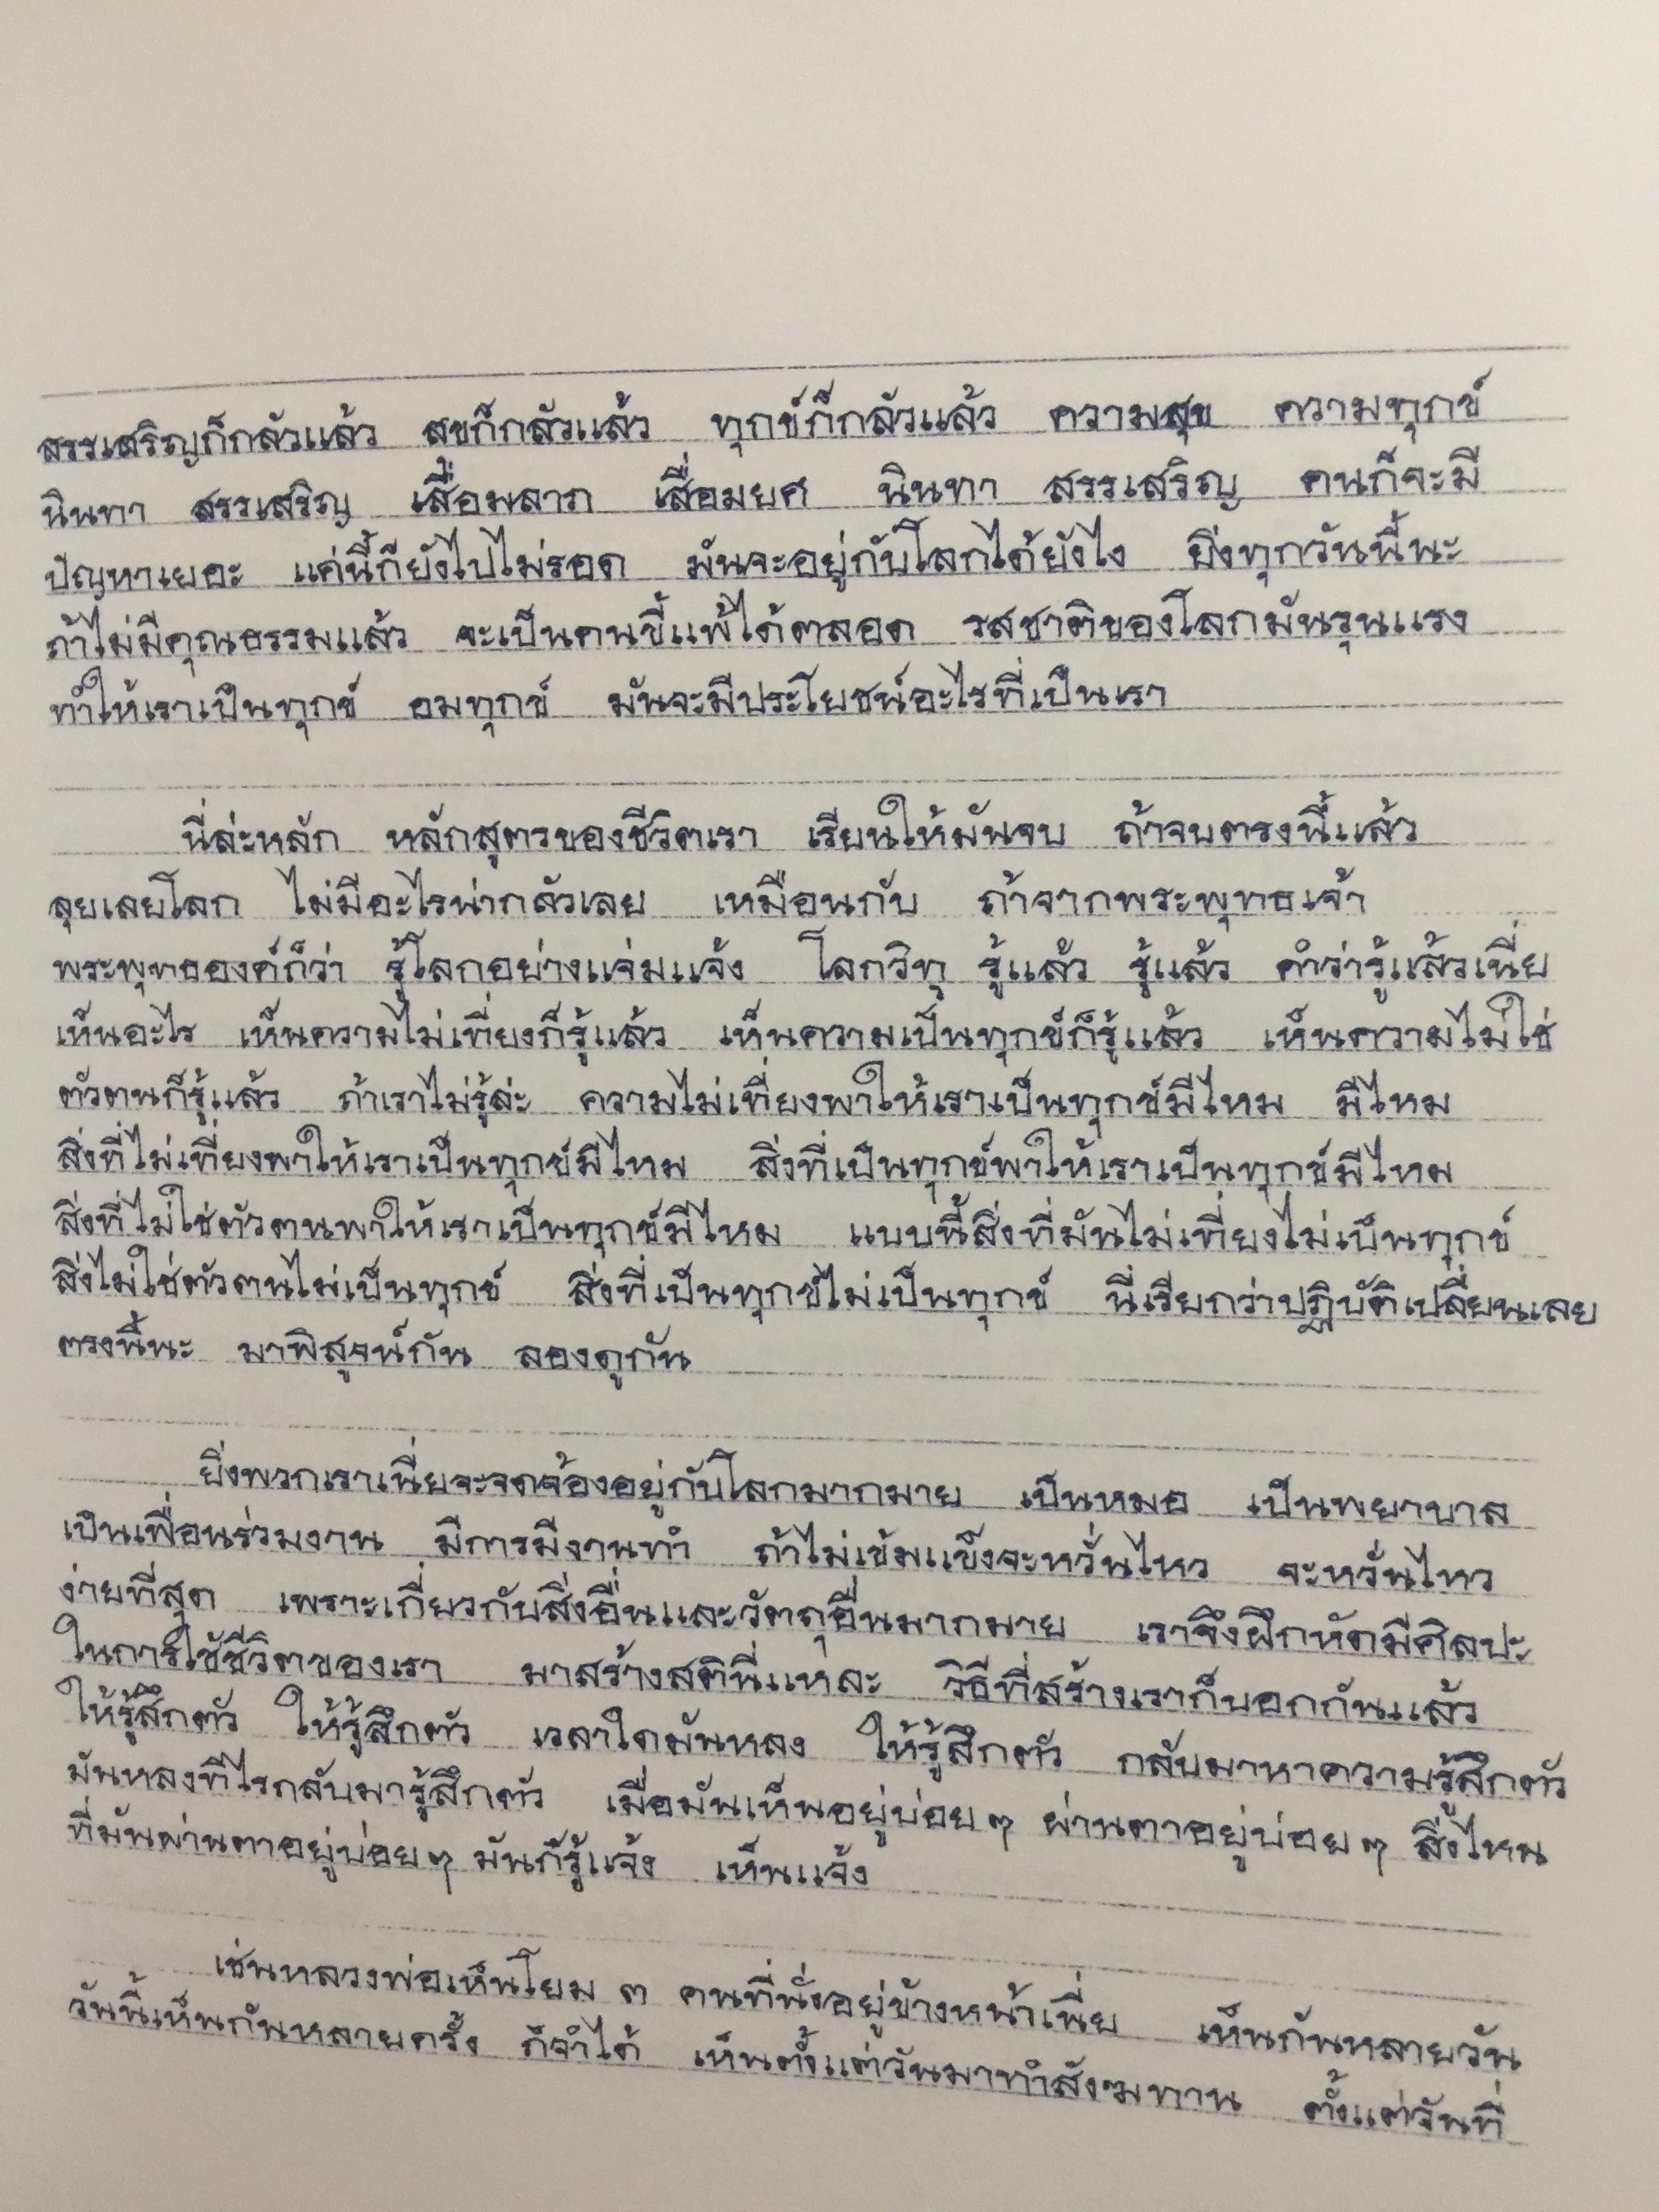 สรรเสริญก็กลัวแล้ว สุขก็กลัวแล้ว ทุกข์ก็กลัวแล้ว ความสุข ความทุกข์
นินทา สรรเสริญ เสื่อมลาภ เสื่อมยศ นินทา สรรเสริญ คนก็จะมี
ปัญหาเยอะ แค่นี้ก็ยังไปไม่รอด มันจะอยู่กับโลกได้ยังไง ยิ่งทุกวันนี้นะ
ถ้าไม่มีคุณธรรมแล้ว จะเป็นคนขี้แพ้ได้ตลอด รสชาติของโลกมันรุนแรง
ทำให้เราเป็นทุกข์ อมทุกข์ มันจะมีประโยชน์อะไรที่เป็นเรา
นี่ล่ะหลัก หลักสูตรของชีวิตเรา เรียนให้มันจบ ถ้าจบตรงนี้แล้ว
ลุยเลยโลก ไม่มีอะไรน่ากลัวเลย เหมือนกับ ถ้าจากพระพุทธเจ้า
พระพุทธองค์ก็ว่า รู้โลกอย่างแจ่มแจ้ง โลกวิทู รู้แล้ว รู้แล้ว คำว่ารู้แล้วเนี่ย
เห็นอะไร เห็นความไม่เที่ยงก็รู้แล้ว เห็นความเป็นทุกข์ก็รู้แล้ว เห็นความไม่ใช่
ตัวตนก็รู้แล้ว ถ้าเราไม่รู้ล่ะ ความไม่เที่ยงพาให้เราเป็นทุกข์มีไหม มีไหม
สิ่งที่ไม่เที่ยงพาให้เราเป็นทุกข์มีไหม สิ่งที่เป็นทุกข์พาให้เราเป็นทุกข์มีไหม
สิ่งที่ไม่ใช่ตัวตนพาให้เราเป็นทุกข์มีไหม แบบนี้สิ่งที่มันไม่เที่ยงไม่เป็นทุกข์
สิ่งไม่ใช่ตัวตนไม่เป็นทุกข์ สิ่งที่เป็นทุกข์ไม่เป็นทุกข์ นี่เรียกว่าปฏิบัติเปลี่ยนเลย
ตรงนี้นะ มาพิสูจน์กัน ลองดูกัน
ยิ่งพวกเราเนี่ยจะจดจ้องอยู่กับโลกมากมาย เป็นหมอ เป็นพยาบาล
เป็นเพื่อนร่วมงาน มีการมีงานทำ ถ้าไม่เข้มแข็งจะหวั่นไหว จะหวั่นไหว
ง่ายที่สุด เพราะเกี่ยวกับสิ่งอื่นและวัตถุอื่นมากมาย เราจึงฝึกหัดมีศิลปะ
ในการใช้ชีวิตของเรา มาสร้างสตินี่แหละ วิธีที่สร้างเราก็บอกกันแล้ว
ให้รู้สึกตัว ให้รู้สึกตัว เวลาใดมันหลง ให้รู้สึกตัว กลับมาหาความรู้สึกตัว
มันหลงทีไรกลับมารู้สึกตัว เมื่อมันเห็นอยู่บ่อยๆ ผ่านตาอยู่บ่อยๆ สิ่งไหน
ที่มันผ่านตาอยู่บ่อยๆ มันก็รู้แจ้ง เห็นแจ้ง
เช่นหลวงพ่อเห็นโยม ๓ คนที่นั่งอยู่ข้างหน้าเนี่ย เห็นกันหลายวัน
วันนี้เห็นกันหลายครั้ง ก็จำได้ เห็นตั้งแต่วันมาทำสังฆทาน ตั้งแต่วันที่